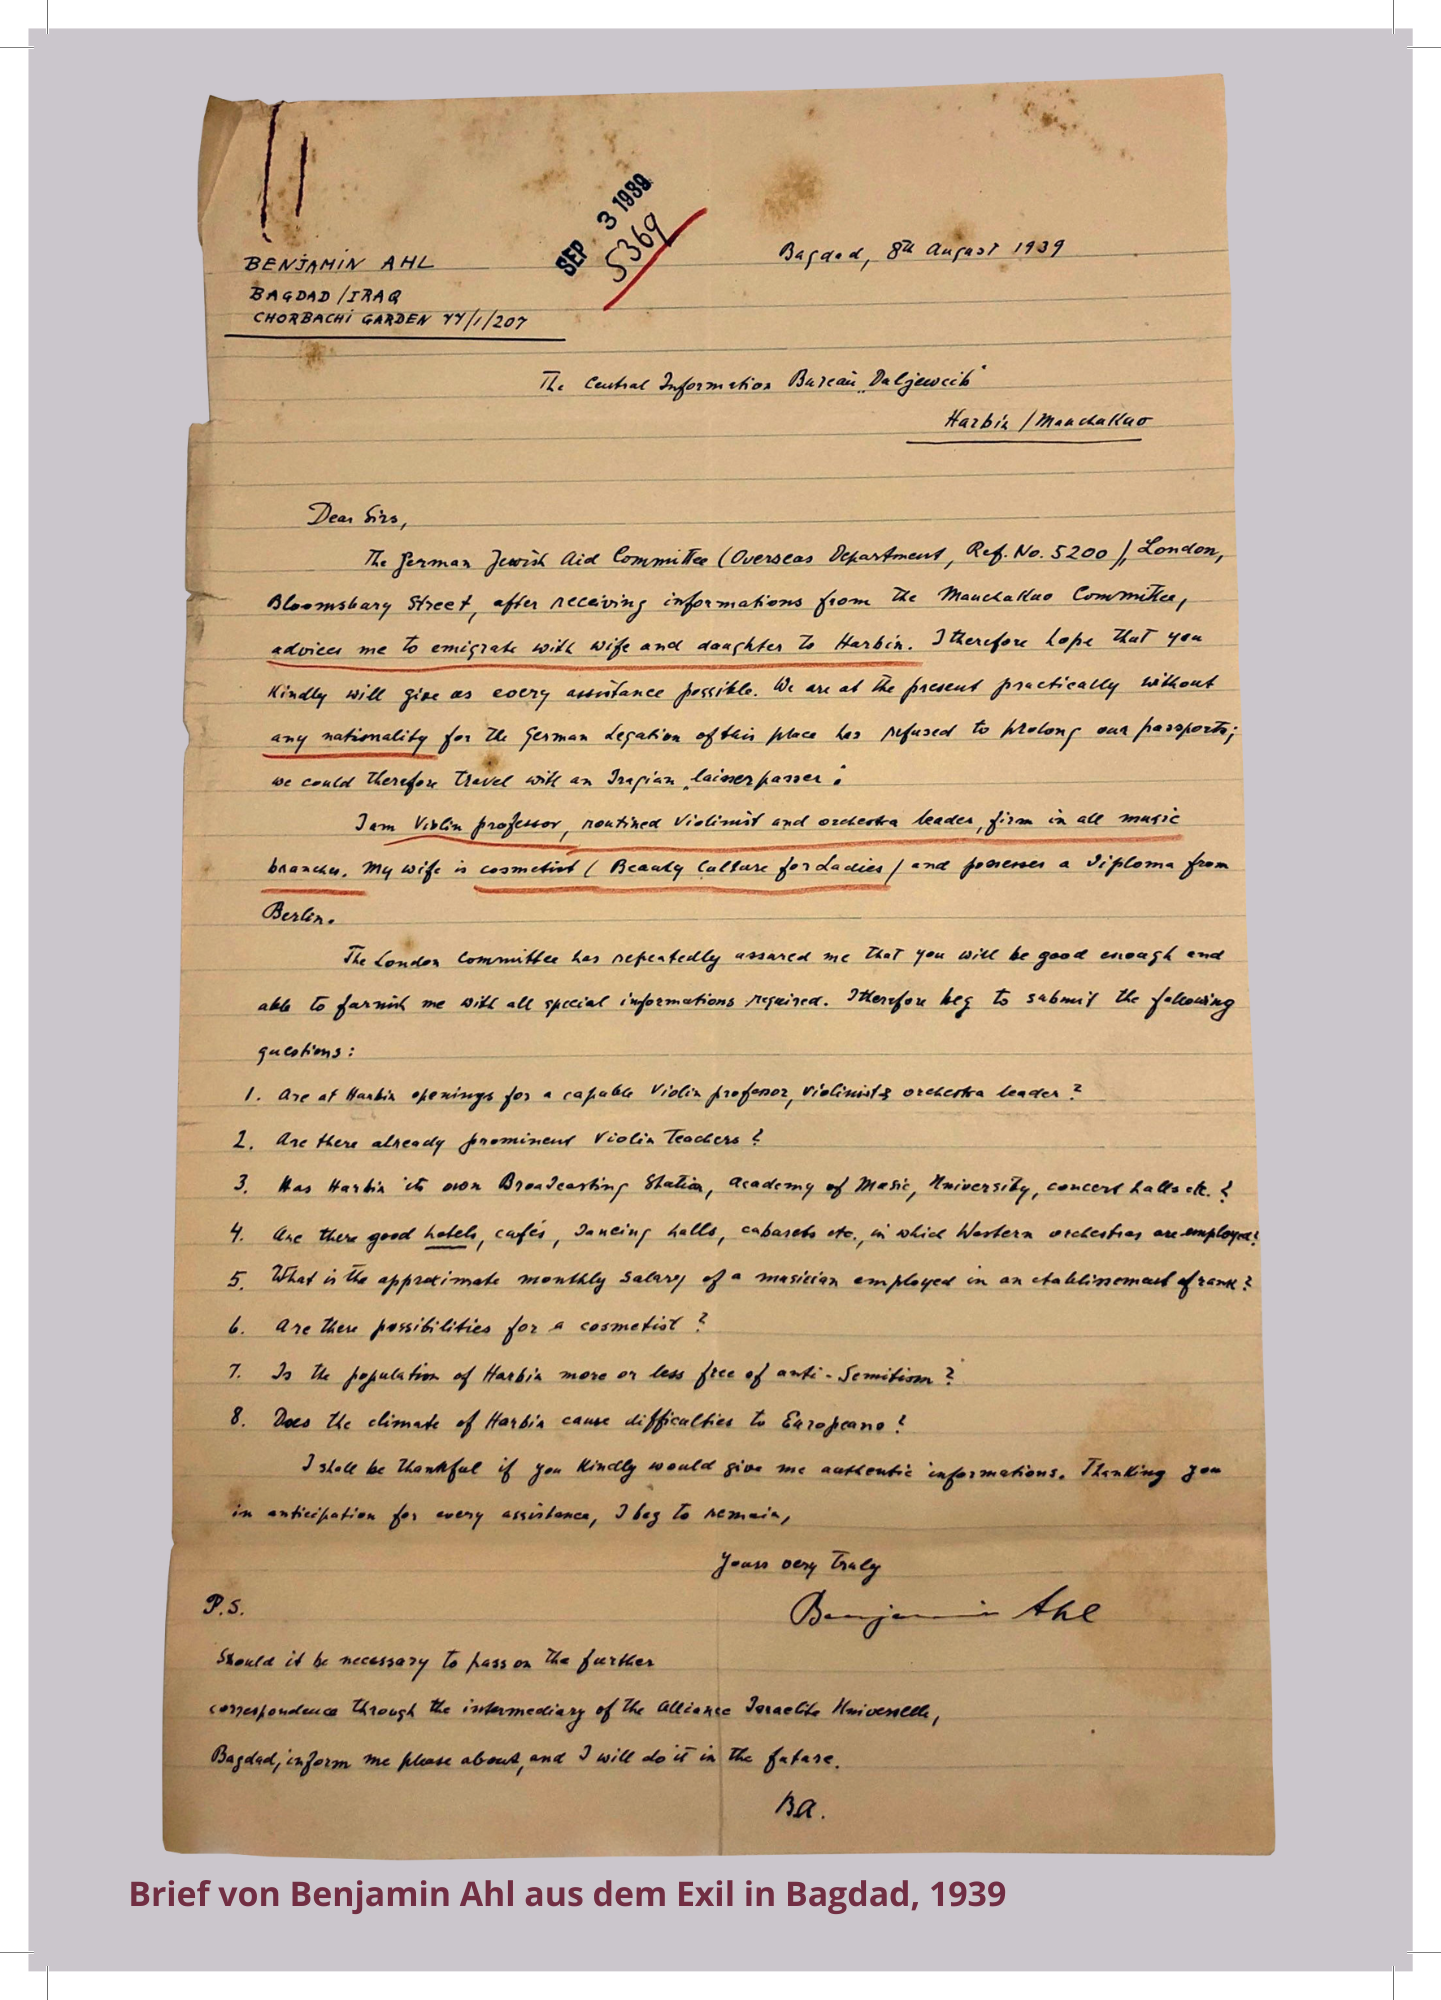 SEP 3 1939
5369
BENJAMIN AHL
BAGDAD / IRAQ
CHORBACHI GARDEN 77/1/207
Bagdad, 8th August 1939
The Central Information Bureau „Daljewcib"
Harbin / Manchukuo
Dear Sirs,
The German Jewish Aid Committee (Overseas Department, Ref. No. 5200), London,
Bloomsbury Street, after receiving informations from the Manchukuo Committee,
advices me to emigrate with wife and daughter to Harbin. I therefore hope that you
kindly will give us every assistance possible. We are at the present practically without
any nationality for the German Legation of this place has refused to prolong our passports;
we could therefore travel with an Iraqian „laisser passer".
I am Violin professor, routined Violinist and orchestra leader, firm in all music
branches. My wife is cosmetist (Beauty Culture for Ladies) and possesses a Diploma from
Berlin.
The London Committee has repeatedly assured me that you will be good enough and
able to furnish me with all special informations required. I therefore beg to submit the following
questions:
1. Are at Harbin openings for a capable Violin professor, violinist & orchestra leader?
2. Are there already prominent Violin Teachers?
3. Has Harbin its own Broadcasting Station, Academy of Music, University, concert halls etc.?
4. Are there good hotels, cafés, dancing halls, cabarets etc., in which Western orchestras are employed?
5. What is the approximate monthly salary of a musician employed in an etablissement of rank?
6. Are there possibilities for a cosmetist?
7. Is the population of Harbin more or less free of anti-Semitism?
8. Does the climate of Harbin cause difficulties to Europeans?
I shall be thankful if you kindly would give me authentic informations. Thanking you
in anticipation for every assistance, I beg to remain,
Yours very truly
Benjamin Ahl
P.S.
Should it be necessary to pass on the further
correspondence through the intermediary of the Alliance Israelite Universelle,
Bagdad, inform me please about, and I will do it in the future.
BA.
Brief von Benjamin Ahl aus dem Exil in Bagdad, 1939